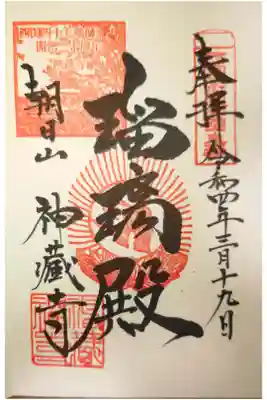 奉拝
令和四年三月十九日
瑠璃殿
朝日山
神蔵寺